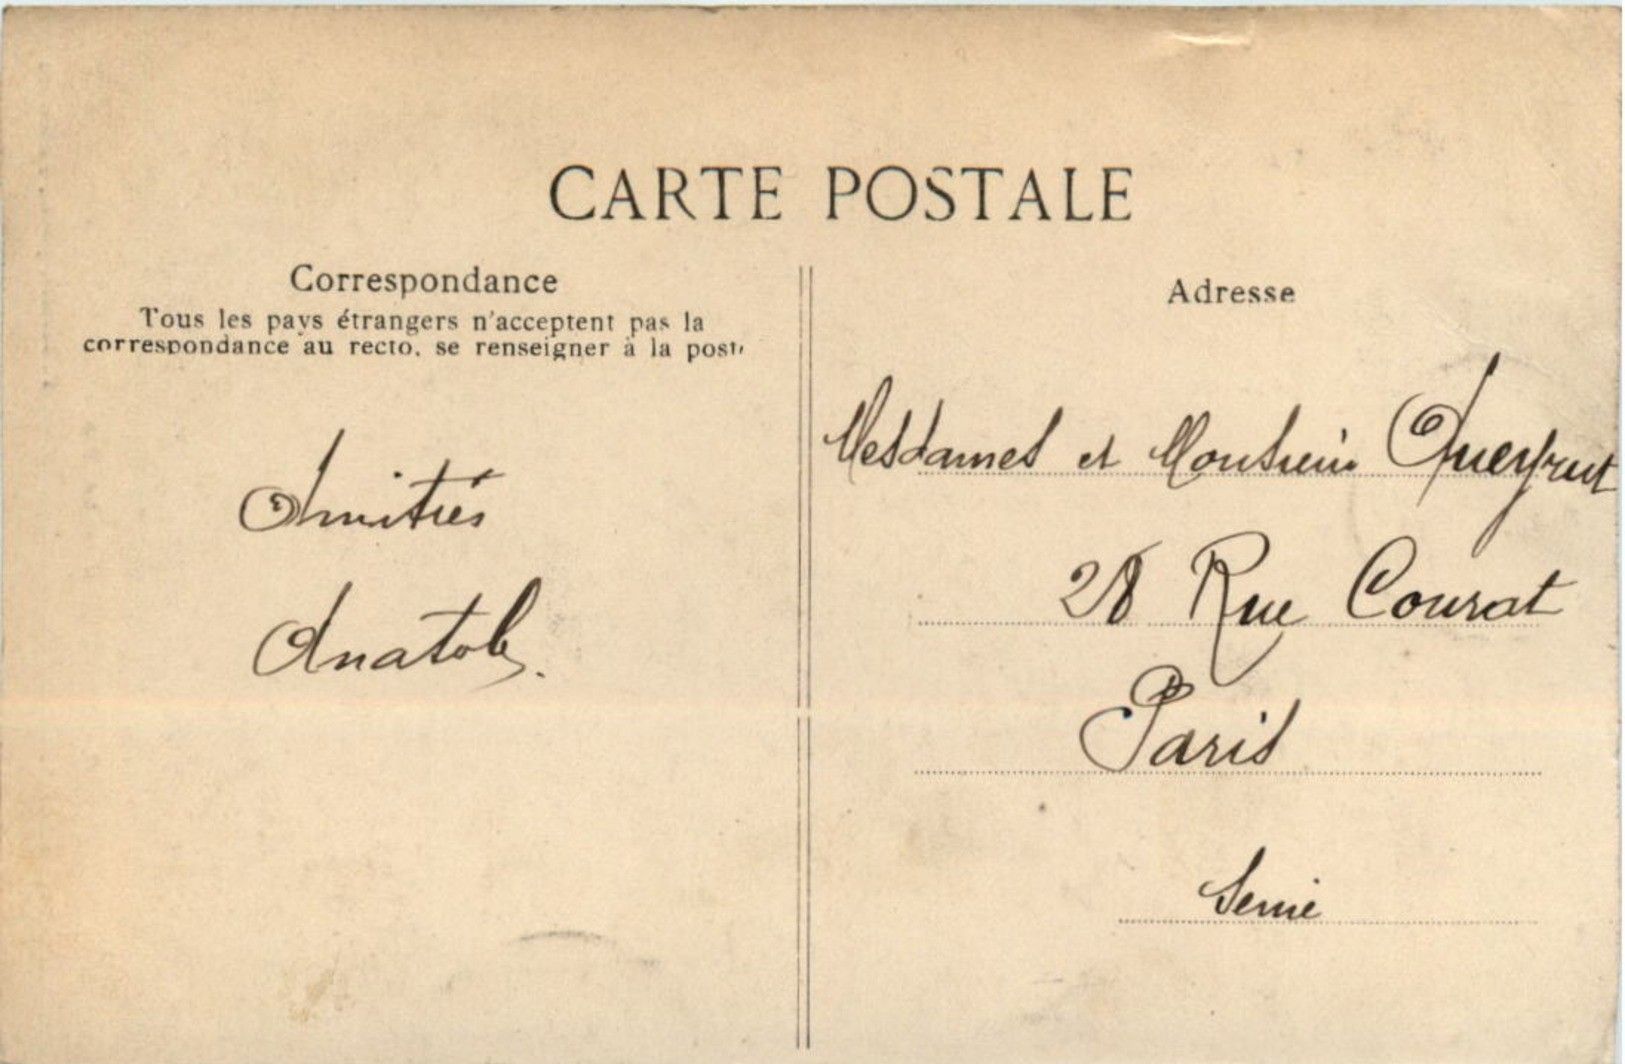 CARTE POSTALE
Correspondance
Tous les pays étrangers n'acceptent pas la
correspondance au recto, se renseigner à la poste
Amitiés
Anatole.
Adresse
Mesdames et Monsieur Queyrut
28 Rue Courat
Paris
Seine